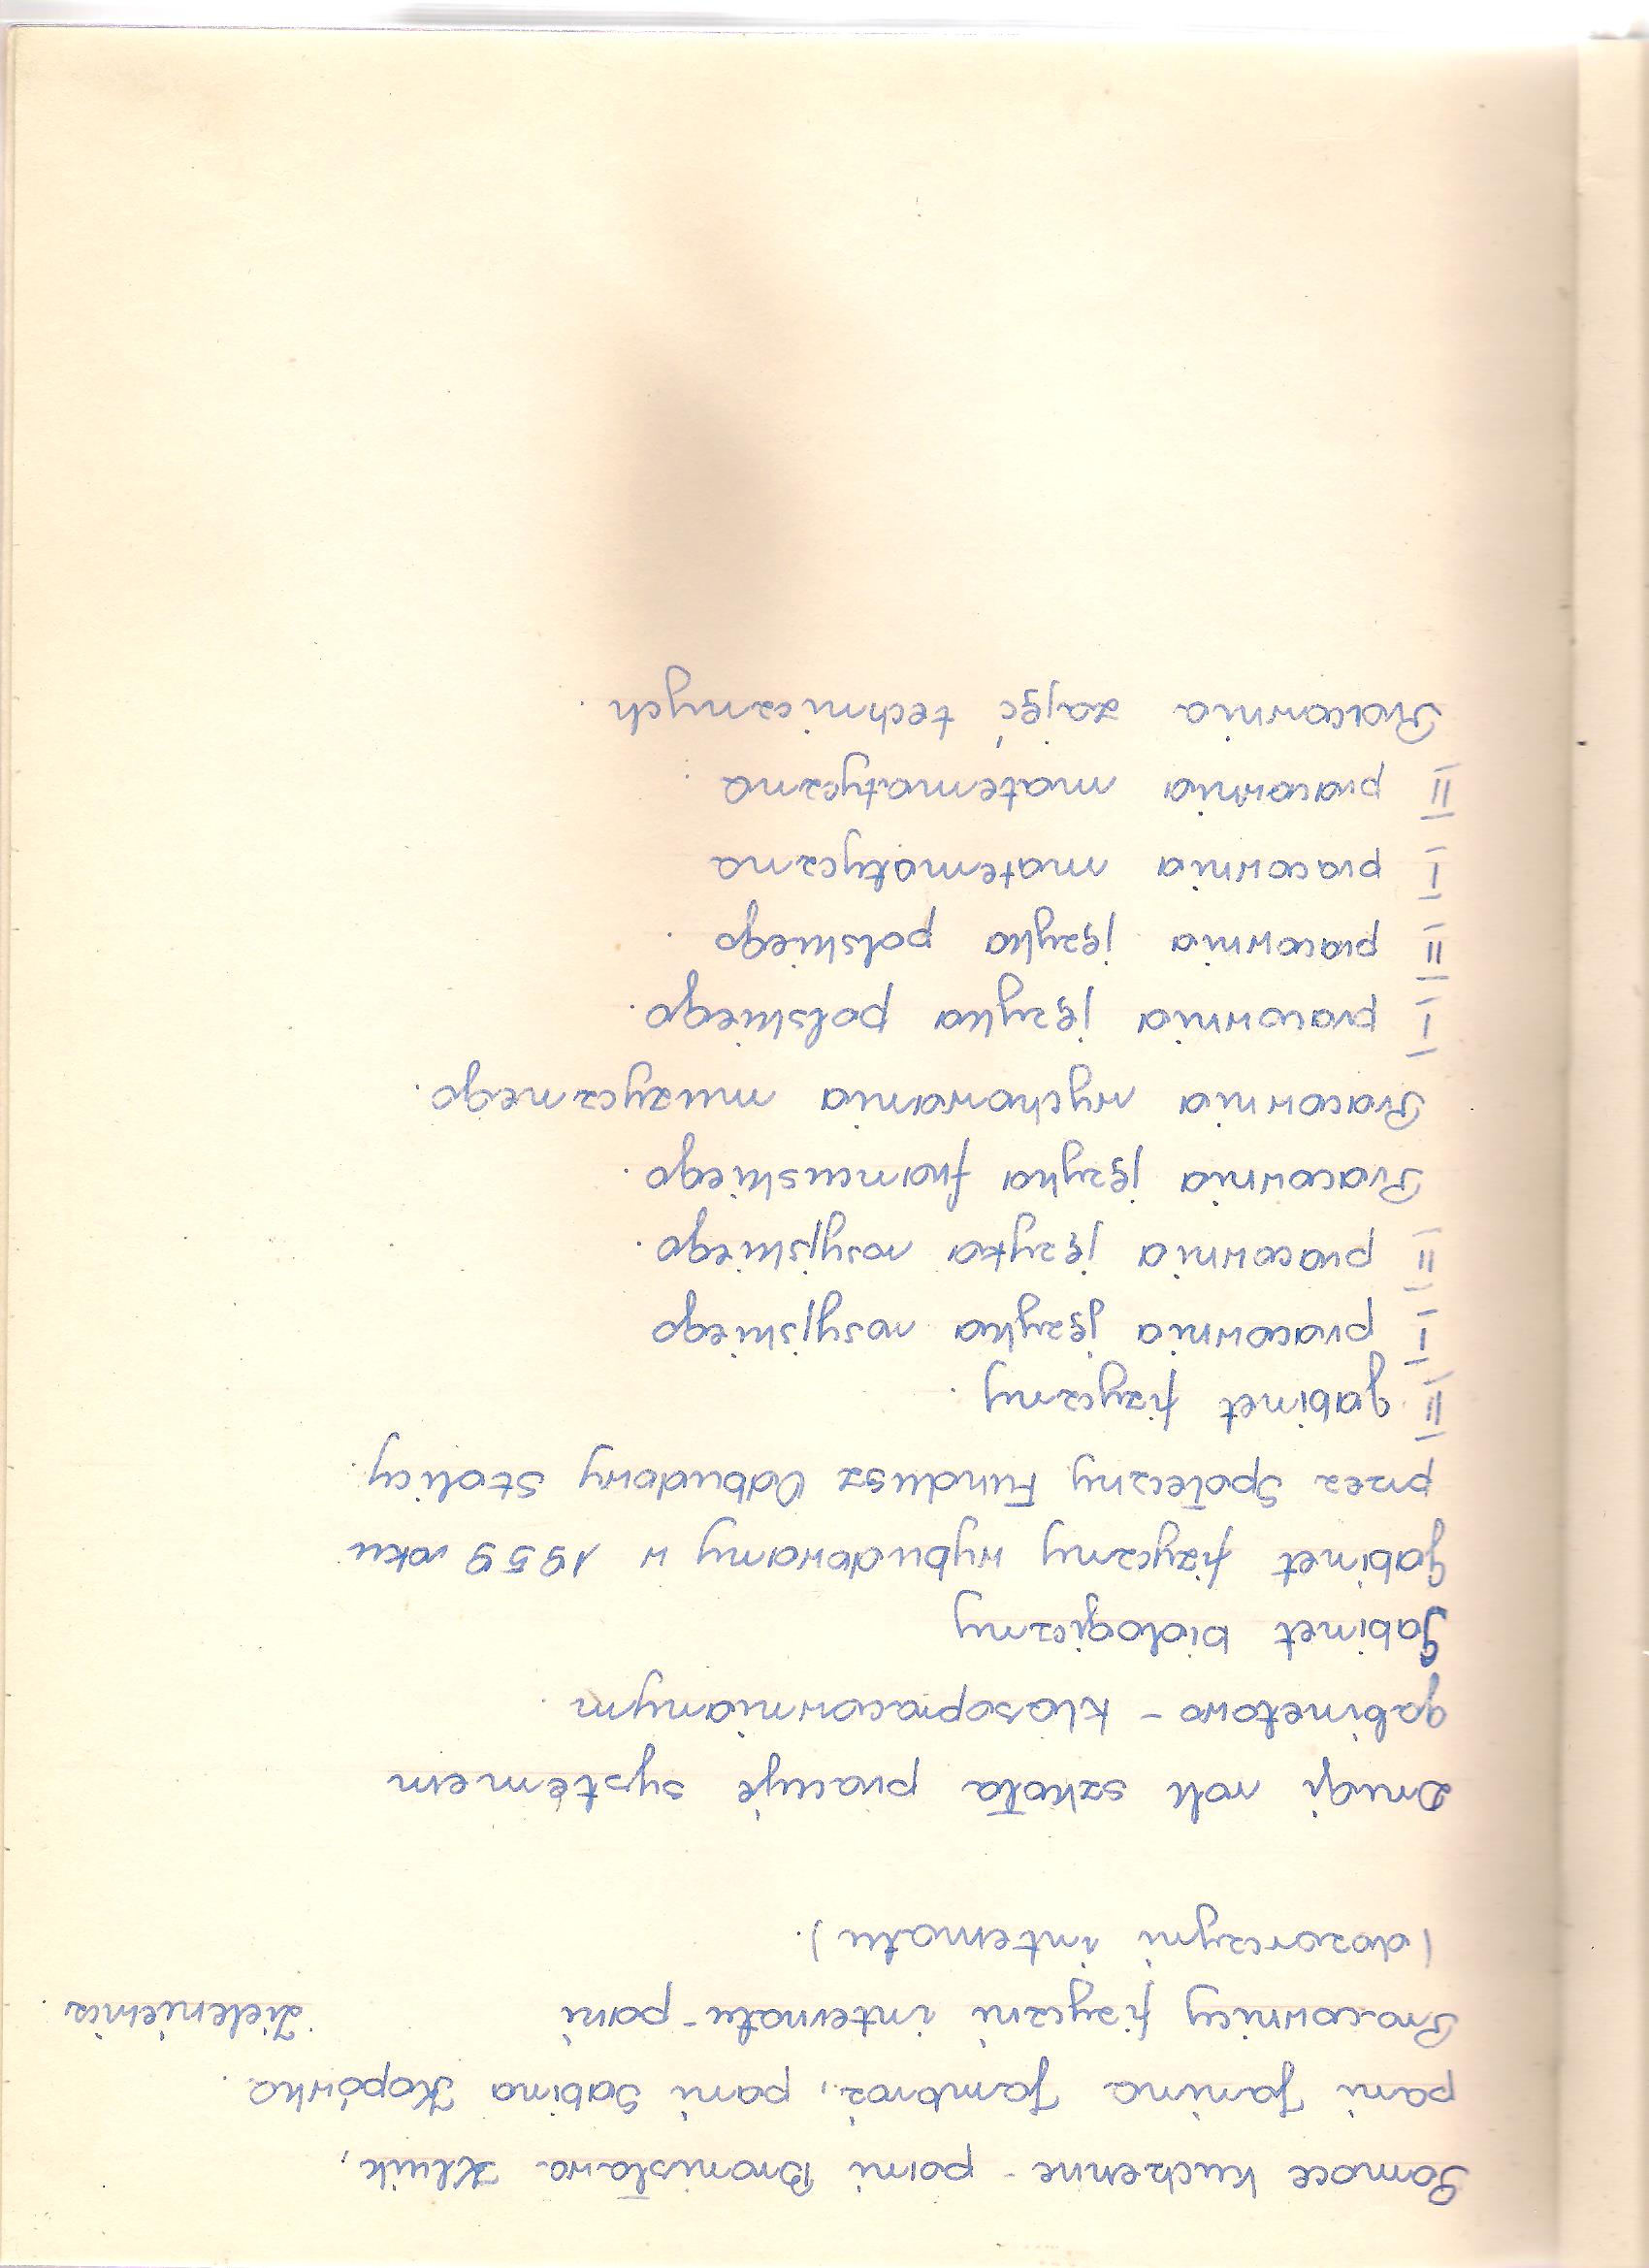 Pomoce kuchenne - pani Bronisława Kluik,
pani Janina Jambroż, pani Sabina Kopówka.
Pracownicy fizyczni internatu - pani Zieleniernia.
(dozorczyni internatu).
Drugi rok szkoła pracuje systemem
gabinetowo - klasopracownianym.
Gabinet biologiczny
Gabinet fizyczny wybudowany w 1959 roku
przez Społeczny Fundusz Odbudowy Stolicy.
II gabinet fizyczny.
I pracownia języka rosyjskiego
II pracownia języka rosyjskiego.
Pracownia języka francuskiego.
Pracownia wychowania muzycznego.
I pracownia języka polskiego.
II pracownia języka polskiego.
I pracownia matematyczna
II pracownia matematyczna.
Pracownia zajęć technicznych.